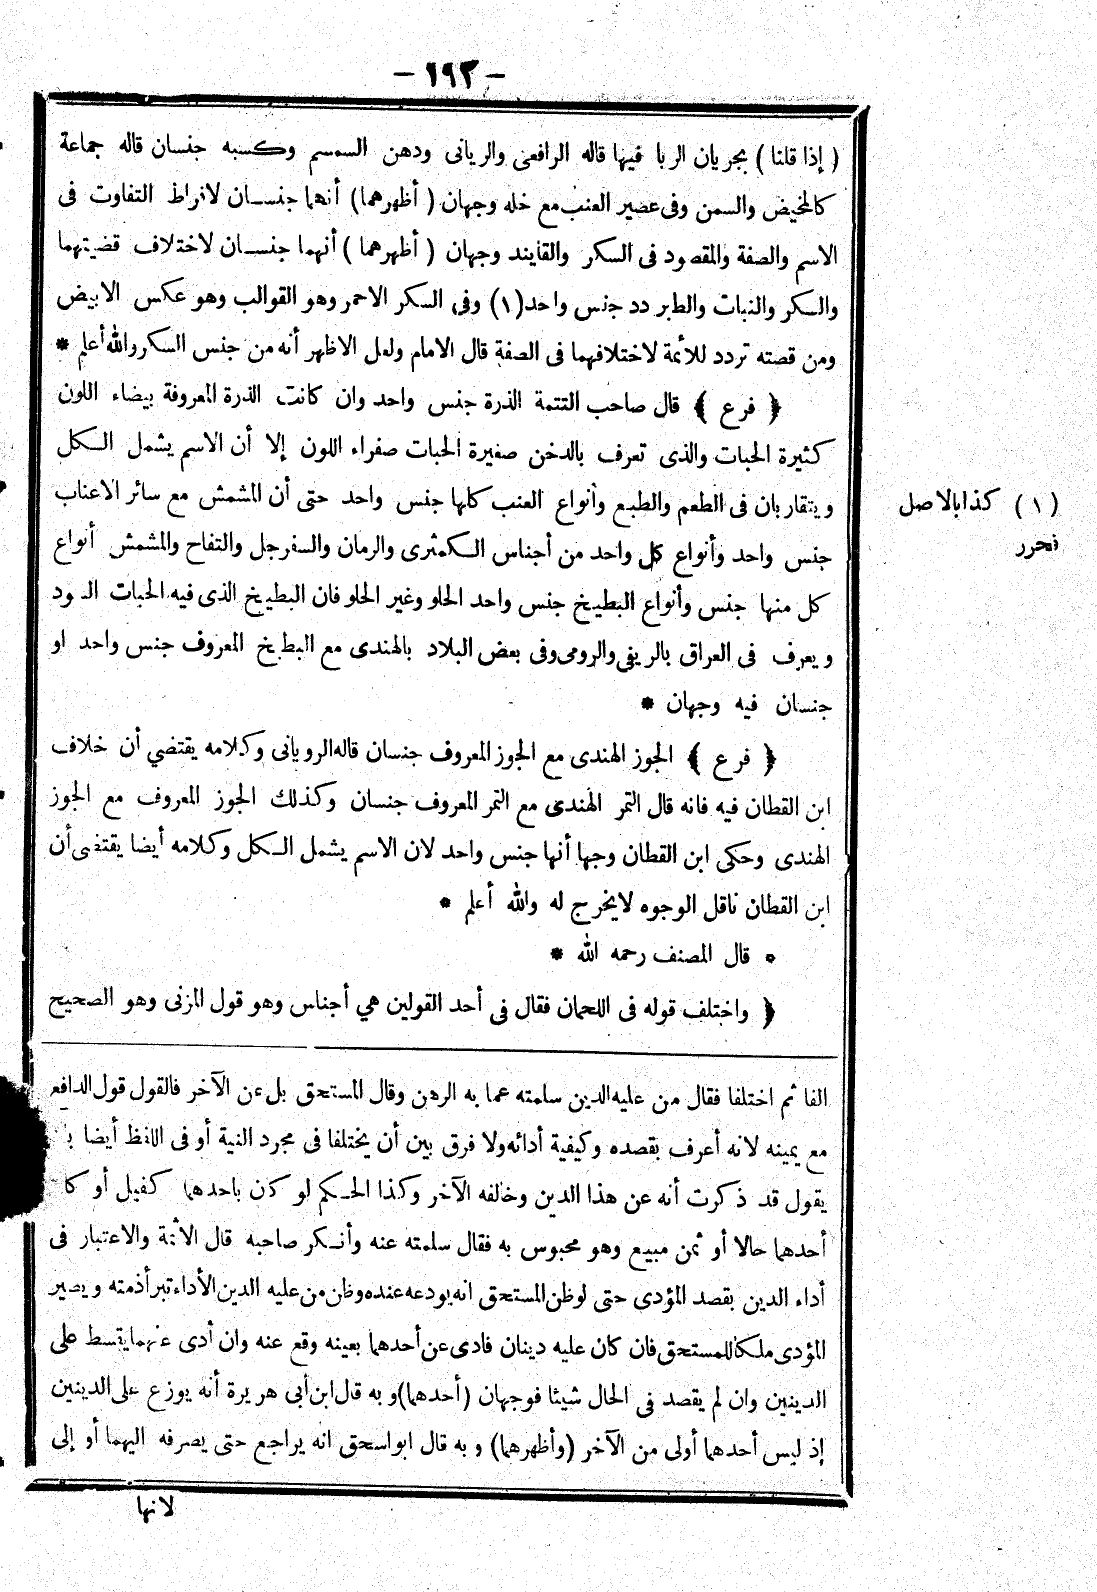 - ١٩٣ -
( إذا قلنا ) بجريان الربا فيها قاله الرافعى والريانى ودهن السمسم وكسبه جنسان قاله جماعة
كالمخيض والسمن وفى عصير العنب مع خله وجهان ( أظهرهما ) أنهما جنسان لافراط التفاوت فى
الاسم والصفة والمقصود فى السكر والقايند وجهان ( أظهرهما ) أنهما جنسان لاختلاف قضيتهما
والسكر والنبات والطبر دد جنس واحد (١) وفى السكر الاحمر وهو القوالب وهو عكس الابيض
ومن قصته تردد للأئمة لاختلافهما فى الصفة قال الامام ولعل الاظهر أنه من جنس السكر والله أعلم *
﴿ فرع ﴾ قال صاحب التتمة الذرة جنس واحد وان كانت الذرة المعروفة بيضاء اللون
كثيرة الحبات والذى تعرف بالدخن صغيرة الحبات صفراء اللون إلا أن الاسم يشمل الكل
ويتقاربان فى الطعم والطبع وأنواع العنب كلها جنس واحد حتى أن المشمش مع سائر الاعناب
جنس واحد وأنواع كل واحد من أجناس الكمثرى والرمان والسفرجل والتفاح والمشمش أنواع
كل منها جنس وأنواع البطيخ جنس واحد الحلو وغير الحلو فان البطيخ الذى فيه الحبات السود
ويعرف فى العراق بالريفى والرومى وفى بعض البلاد بالهندى مع البطيخ المعروف جنس واحد او
جنسان فيه وجهان *
﴿ فرع ﴾ الجوز الهندى مع الجوز المعروف جنسان قاله الرويانى وكلامه يقتضي أن خلاف
ابن القطان فيه فانه قال التمر الهندى مع التمر المعروف جنسان وكذلك الجوز المعروف مع الجوز
الهندى وحكى ابن القطان وجها أنها جنس واحد لان الاسم يشمل الكل وكلامه أيضا يقتضى أن
ابن القطان ناقل الوجوه لا يخرج له والله أعلم *
* قال المصنف رحمه الله *
﴿ واختلف قوله فى اللحمان فقال فى أحد القولين هي أجناس وهو قول المزنى وهو الصحيح
(١) كذا بالاصل
فحرر
الفا ثم اختلفا فقال من عليه الدين سلمته عما به الرهن وقال المستحق بل عن الآخر فالقول قول الدافع
مع يمينه لانه أعرف بقصده وكيفية أدائه ولا فرق بين أن يختلفا فى مجرد النية أو فى اللفظ أيضا
يقول قد ذكرت أنه عن هذا الدين وخالفه الآخر وكذا الحكم لو كان باحدهما كفيل أو كا
أحدهما حالا أو ثمن مبيع وهو محبوس به فقال سلمته عنه وأنكر صاحبه قال الأئمة والاعتبار فى
أداء الدين بقصد المؤدى حتى لو ظن المستحق انه يودعه عنده وظن من عليه الدين الأداء تبرأ ذمته ويصير
المؤدى ملكا للمستحق فان كان عليه دينان فادى عن أحدهما بعينه وقع عنه وان أدى عنهما يقسط على
الدينين وان لم يقصد فى الحال شيئا فوجهان (أحدهما) وبه قال ابن أبى هريرة أنه يوزع على الدينين
إذ ليس أحدهما أولى من الآخر (وأظهرهما) وبه قال ابو اسحق انه يراجع حتى يصرفه اليهما أو إلى
لانها